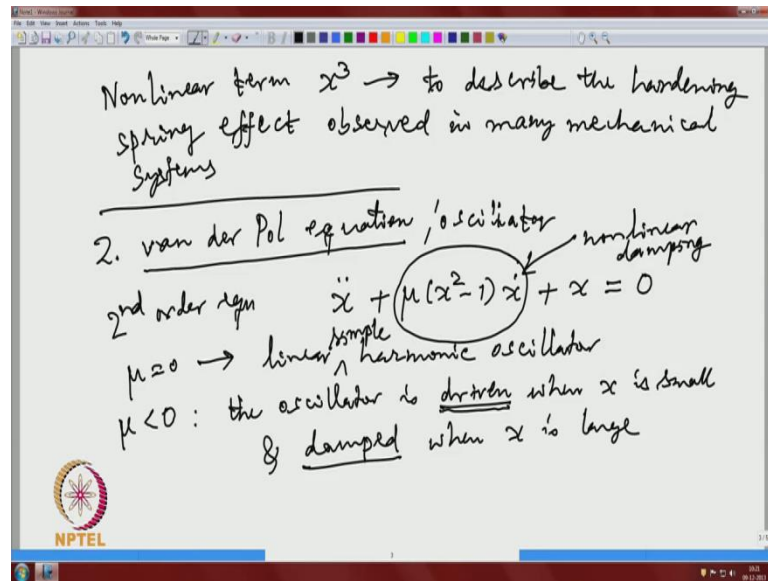 Note1 - Windows Journal
File Edit View Insert Actions Tools Help
Whole Page
Nonlinear term x³ → to describe the hardening
spring effect observed in many mechanical
systems
2. van der Pol equation / oscillator
nonlinear
damping
2nd order eqn ẍ + μ(x²-1)ẋ + x = 0
μ=0 → linear ^simple harmonic oscillator
μ<0 : the oscillator is driven when x is small
& damped when x is large
NPTEL
3